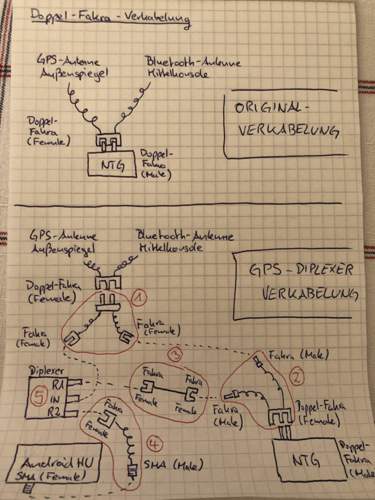 Doppel-Fakra-Verkabelung
GPS-Antenne
Außenspiegel
Bluetooth-Antenne
Mittelkonsole
Doppel-
Fakra
(Female)
NTG
Doppel-
Fakra
(Male)
ORIGINAL-
VERKABELUNG
GPS-Antenne
Außenspiegel
Bluetooth-Antenne
Mittelkonsole
Doppel-Fakra
(Female)
1
GPS-DIPLEXER
VERKABELUNG
Fakra
(Female)
Fakra
(Female)
Fakra (Male)
3
2
Diplexer
5
R1
IN
R2
Fakra
Female
Fakra
Female
Fakra
(Male)
Doppel-Fakra
(Female)
Fakra
Female
4
Android HU
SMA (Female)
SMA (Male)
NTG
Doppel-
Fakra
(Male)